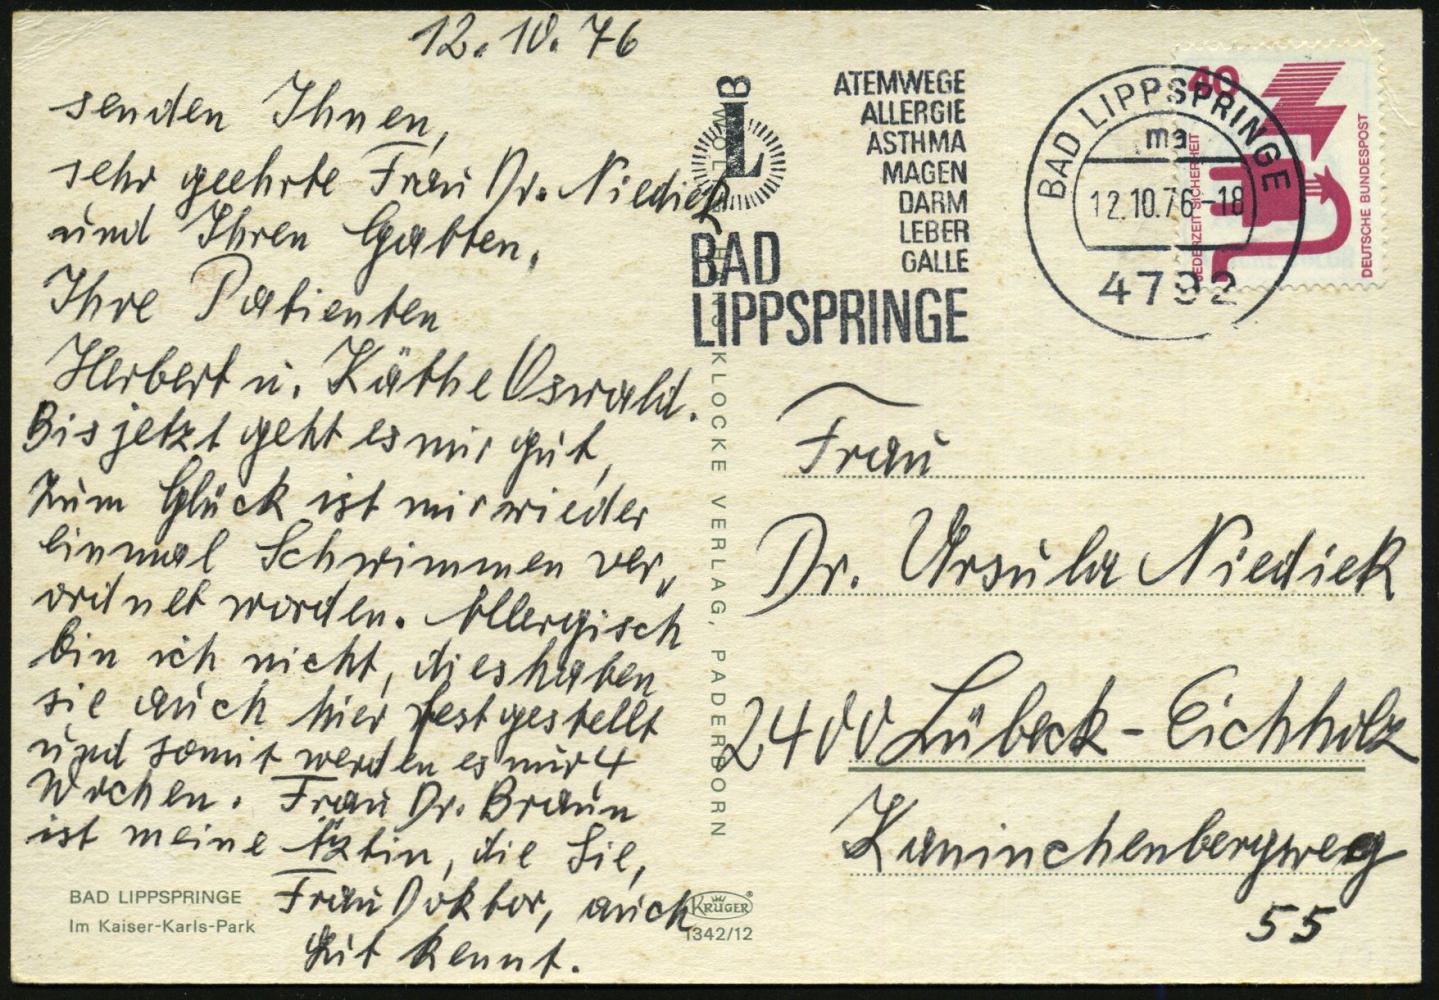 12.10.76
senden Ihnen,
sehr geehrte Frau Dr. Niedick
und Ihren Gatten,
Ihre Patienten
Herbert u. Käthe Oswald.
Bis jetzt geht es mir gut,
zum Glück ist mir wieder
einmal Schwimmen ver„
ordnet worden. Allergisch
bin ich nicht, dies haben
sie auch hier festgestellt
und somit werden es nur 4
Wochen. Frau Dr. Braun
ist meine Ärztin, die Sie,
Frau Doktor, auch
gut kennt.
BAD LIPPSPRINGE
Im Kaiser-Karls-Park
KLOCKE VERLAG, PADERBORN
KRÜGER
1342/12
B
L
BAD
LIPPSPRINGE
ATEMWEGE
ALLERGIE
ASTHMA
MAGEN
DARM
LEBER
GALLE
BAD LIPPSPRINGE
ma
12.10.76-18
4792
40
JEDERZEIT SICHERHEIT
DEUTSCHE BUNDESPOST
Frau
Dr. Ursula Niedick
2400 Lübeck-Eichholz
Kaninchenbergweg
55